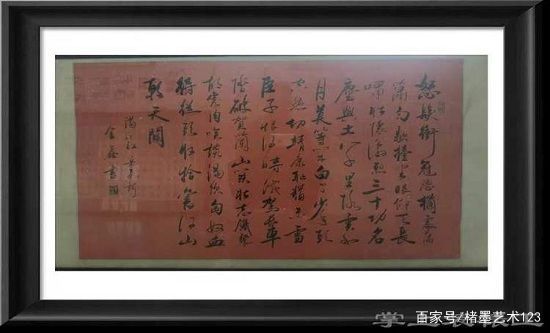 怒髮衝冠憑欄處瀟
蕭雨歇抬望眼仰天長
嘯壯懷激烈三十功名
塵與土八千里路雲和
月莫等閒白了少年頭
空悲切靖康恥猶未雪
臣子恨何時滅駕長車
踏破賀蘭山缺壯志飢餐
胡虜肉笑談渴飲匈奴血
待從頭收拾舊河山
朝天闕
滿江紅 岳飛詞
書
掌上
百家号/楮墨艺术123